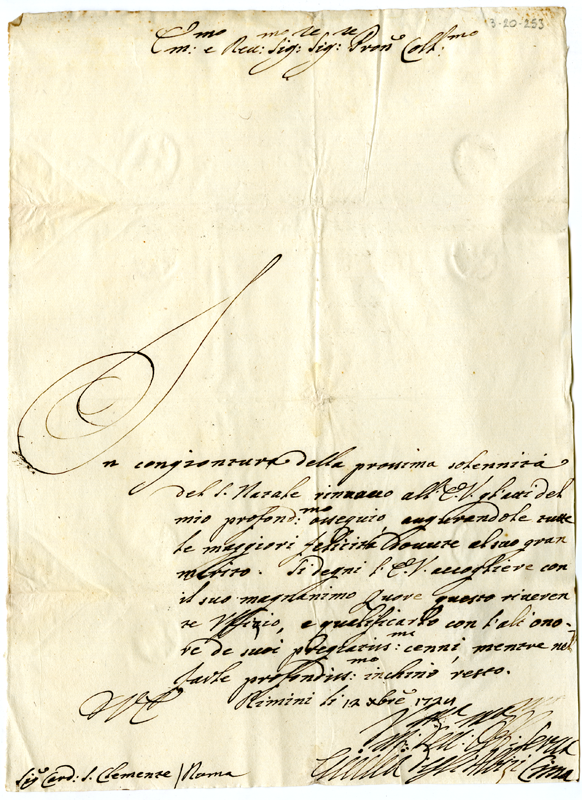 3-20-253
Em:mo e Reu:mo Sig:re Sig:re Pron: Coll:mo
In congiontura della prossima solennità
del S. Natale rinuouo all'E.V. gli atti del
mio profond:mo ossequio, augurandole tutte
le maggiori felicità douute al suo gran
merito. Si degni l'E.V. accogliere con
il suo magnanimo Quore questo riueren
te Vffizio, e qualificarlo con l'alt'ono-
re de suoi pregiatiss:mi cenni, mentre nel
farle profondiss:mo inchino, resto.
Rimini li 12 xbre 1724
Sig: Card: S. Clemente / Roma
Cima